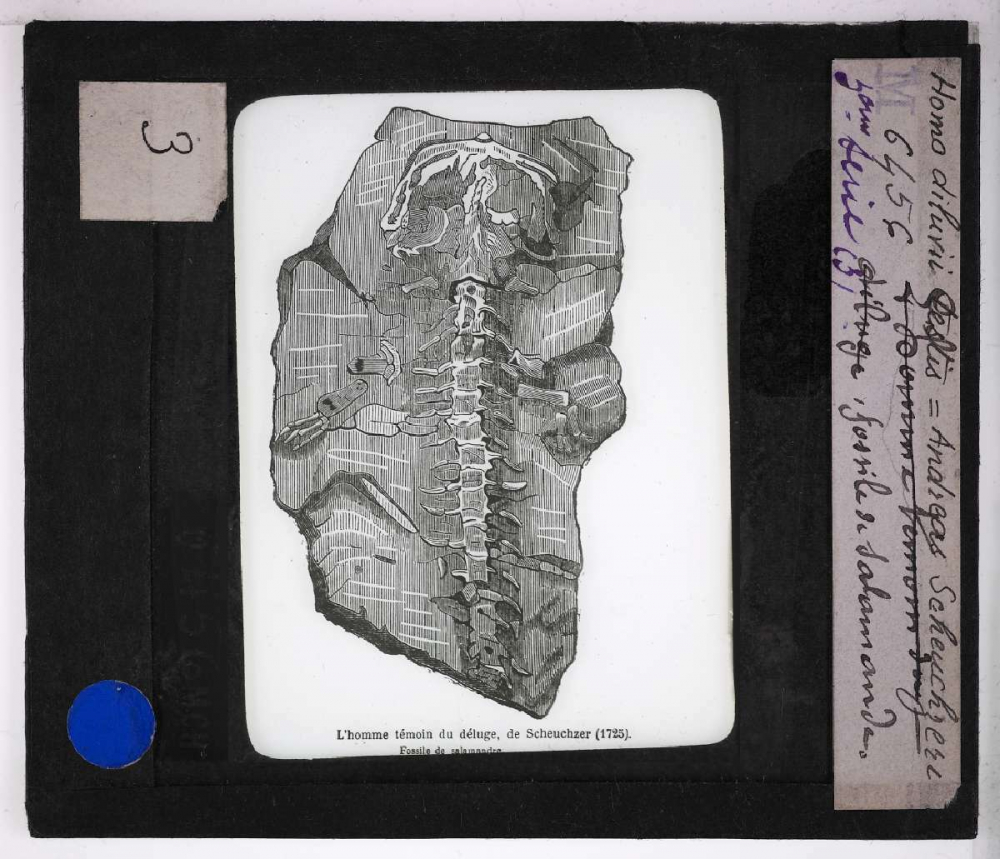 3
Homo diluvii testis = Andrias Scheuchzeri
M 6456 L'homme témoin du
déluge, fossile de salamandre.
3ème Série (3)
L'homme témoin du déluge, de Scheuchzer (1725).
Fossile de salamandre